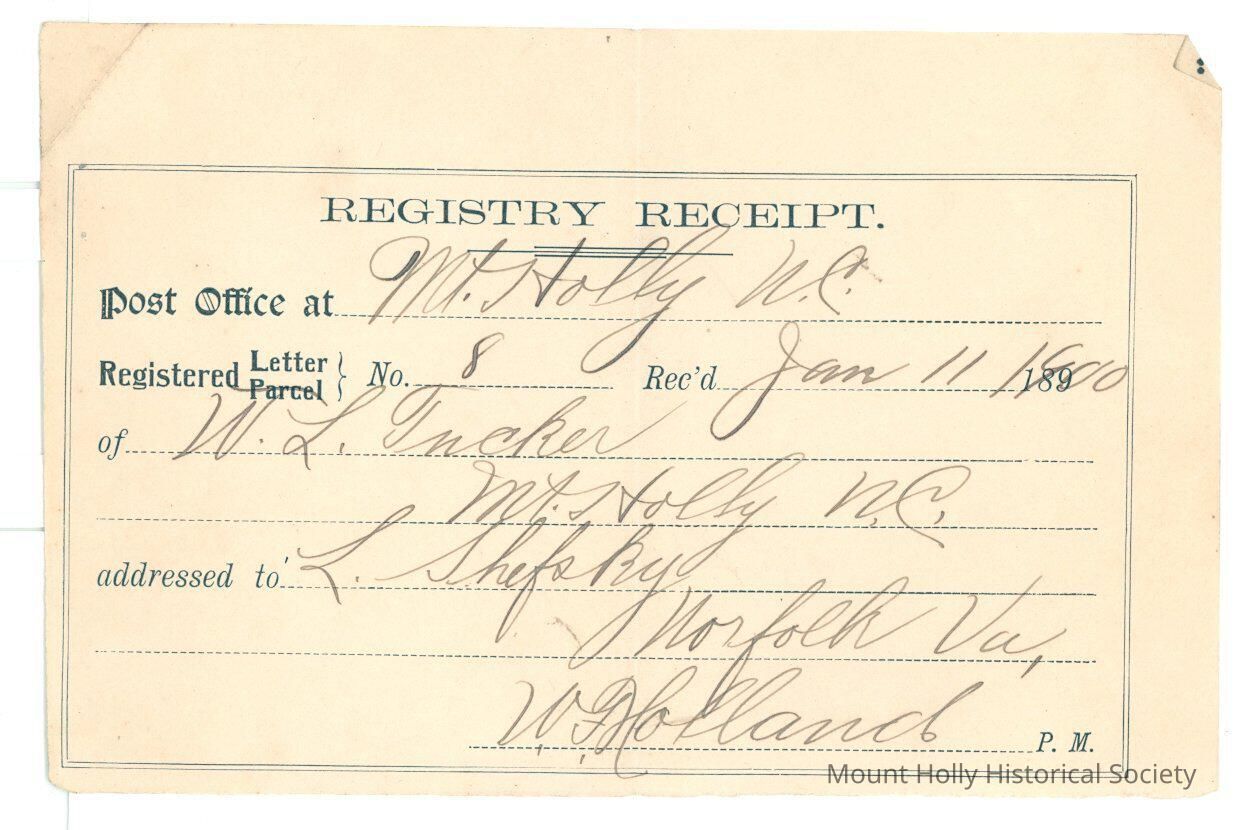 REGISTRY RECEIPT.
Post Office at Mt. Holly N.C.
Registered Letter Parcel } No. 8 Rec'd Jan 11 1900 189
of W. L. Tucker
Mt. Holly N.C.
addressed to L. Shefsky
Norfolk Va,
W. F. Holland P. M.
Mount Holly Historical Society